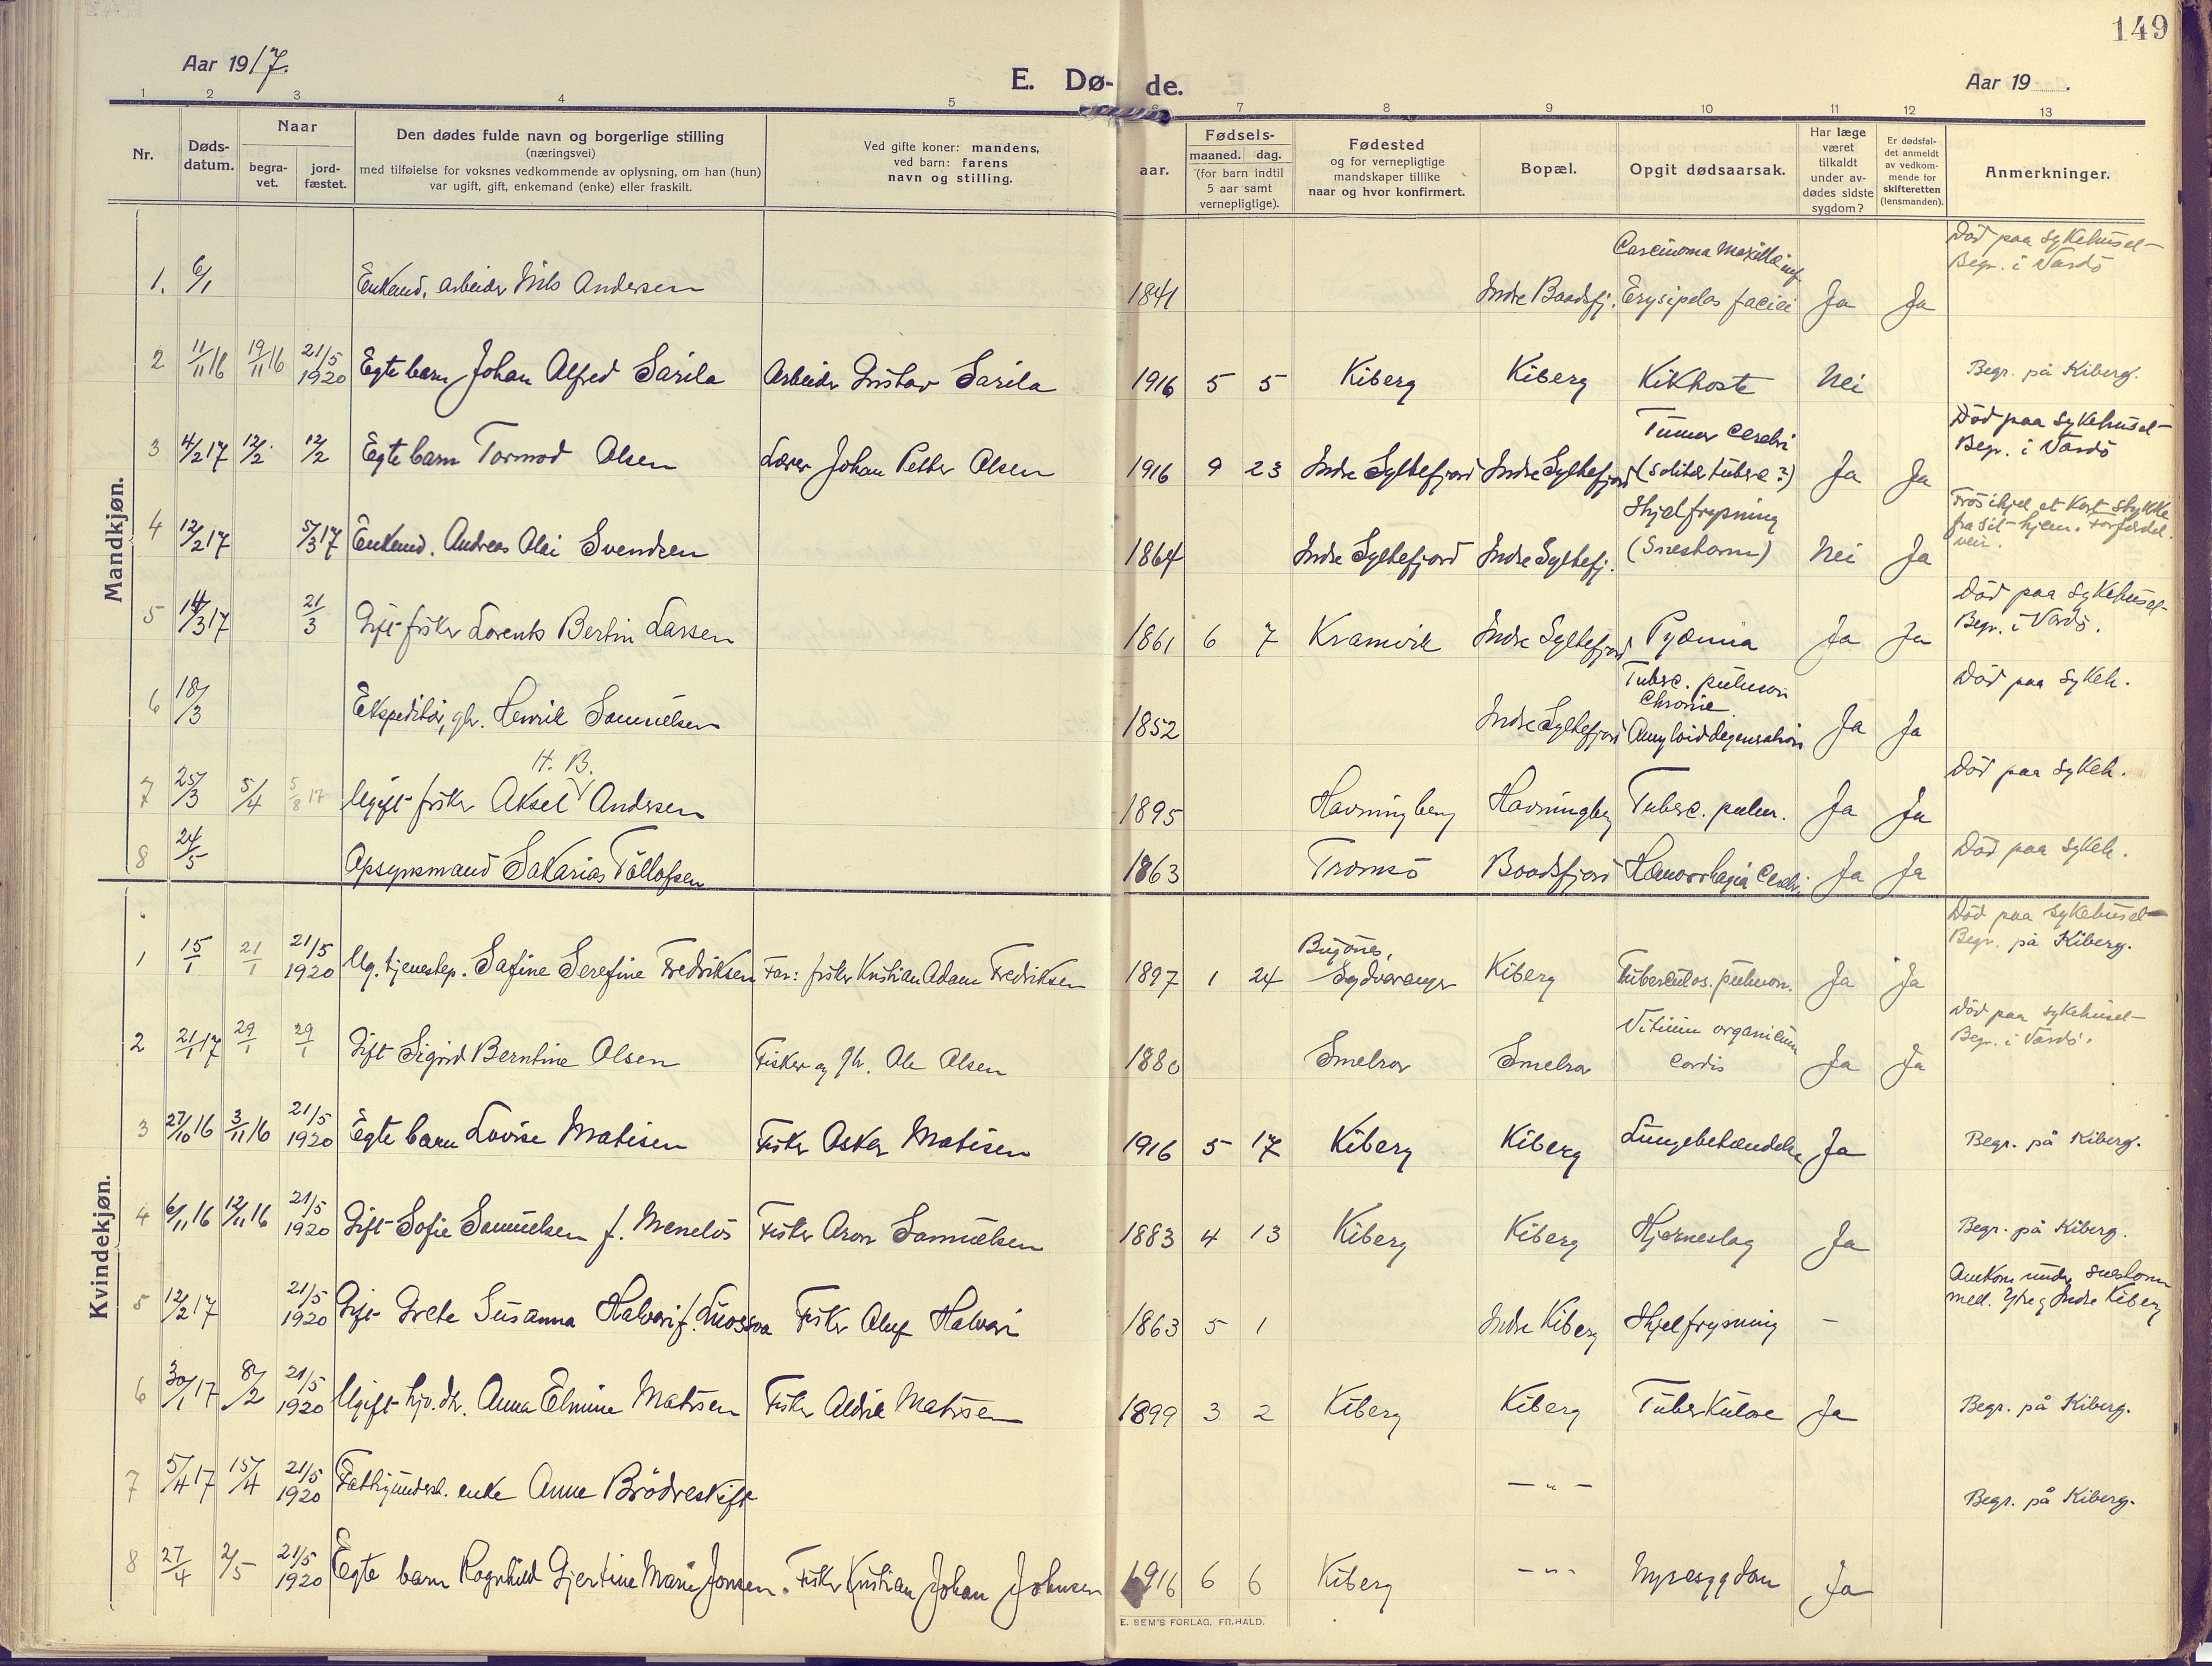 149
Aar 1917.
E. Dø- de.
Aar 19 .
1 2 3 4 5 6 7 8 9 10 11 12 13
Nr. Døds-datum. Naar begra-vet. jord-fæstet. Den dødes fulde navn og borgerlige stilling (næringsvei) med tilføielse for voksnes vedkommende av oplysning, om han (hun) var ugift, gift, enkemand (enke) eller fraskilt. Ved gifte koner: mandens, ved barn: farens navn og stilling. aar. Fødsels- maaned. dag. (for barn indtil 5 aar samt vernepligtige). Fødested og for vernepligtige mandskaper tillike naar og hvor konfirmert. Bopæl. Opgit dødsaarsak. Har læge været tilkaldt under av-dødes sidste sygdom? Er dødsfal-det anmeldt av vedkom-mende for skifteretten (lensmanden). Anmerkninger.
Mandkjøn.
1. 6/1 Enkemd. arbeider Nils Andersen 1841 Indre Baadsfj. Carcinoma Maxillæ inf. Erysipelas faciei Ja Ja Död paa sykehuset Begr. i Vardö
2 11/11 16 19/11 16 21/5 1920 Egte barn Johan Alfred Sarila Arbeider Gustav Sarila 1916 5 5 Kiberg Kiberg Kikhoste Nei Begr. på Kiberg.
3 4/2 17 12/2 12/2 Egte barn Tormod Olsen Lærer Johan Petter Olsen 1916 9 23 Indre Syltefjord Indre Syltefjord Tumor cerebri (solitær tuberc?) Ja Ja Död paa sykehuset Begr. i Vardö
4 12/2 17 5/3 17 Enkemd. Andreas Olai Svendsen 1864 Indre Syltefjord Indre Syltefj. Ihjelfrysning (Snestorm) Nei Ja Frös ihjel et kort stykke fra sit hjem. Forferdel. veir.
5 14/3 17 21/3 Gift fisker Lorents Bertin Larsen 1861 6 7 Kramvik Indre Syltefjord Pyæmia Ja Ja Död paa sykehuset Begr. i Vardö.
6 18/3 Ekspeditör, gbr. Henrik Samuelsen 1852 Indre Syltefjord Tuberc. pulmon chronic. Amyloiddegeneration Ja Ja Död paa sykeh.
7 25/3 5/4 5/8 17 Ugift fisker Aksel H. B. Andersen 1895 Havningberg Havningberg Tuberc. pulm. Ja Ja Död paa sykeh.
8 24/5 Opsynsmand Sakarias Töllefsen 1863 Tromsö Baadsfjord Hæmorrhagia cerebri Ja Ja Död paa sykeh.
Kvindekjøn.
1 15/1 21/1 21/5 1920 Ug. tjenestep. Safine Serefine Fredriksen Far: fisker Kristian Adam Fredriksen 1897 1 24 Bugönes, Sydvaranger Kiberg Tuberculos. pulmon. Ja Ja Död paa sykehuset Begr. på Kiberg.
2 21/1 17 29/1 29/1 Gift Sigrid Berntine Olsen Fisker og gbr. Ole Olsen 1880 Smelror Smelror Vitium organicum cordis Ja Ja Död paa sykehuset Begr. i Vardö.
3 27/10 16 3/11 16 21/5 1920 Egte barn Lovise Matisen Fisker Oskar Matisen 1916 5 17 Kiberg Kiberg Lungebetændelse Ja Begr. på Kiberg.
4 6/11 16 12/11 16 21/5 1920 Gift Sofie Samuelsen f. Menelös Fisker Aron Samuelsen 1883 4 13 Kiberg Kiberg Hjerneslag Ja Begr. på Kiberg.
5 12/2 17 21/5 1920 Gift Grete Susanna Halvari f. Luossa Fisker Oluf Halvari 1863 5 1 Indre Kiberg Ihjelfrysning – Omkom under snestorm mell. Ytre og Indre Kiberg
6 30/1 17 8/2 21/5 1920 Ugift hjv. dtr. Anna Elmine Matisen Fisker Aldrik Matisen 1899 3 2 Kiberg Kiberg Tuberkulose Ja Begr. på Kiberg.
7 5/4 17 15/4 21/5 1920 Fattigunderst. enke Anne Brödreskift – " – Begr. på Kiberg.
8 27/4 2/5 21/5 1920 Egte barn Ragnhild Gjertine Marie Jonsen. Fisker Kristian Johan Johnsen 1916 6 6 Kiberg – " – Nyresygdom Ja
E. SEM'S FORLAG, FR.HALD.